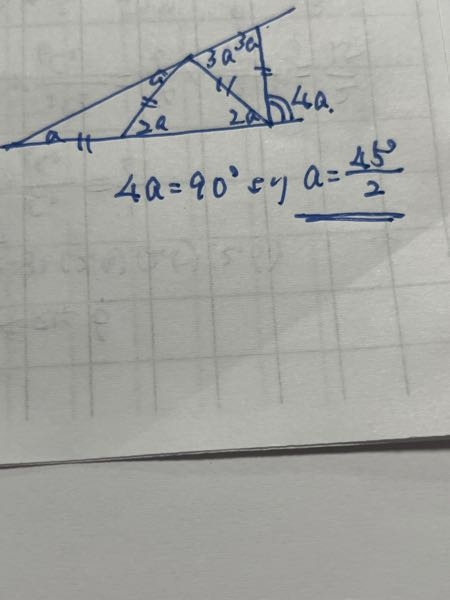 3a 3a
a
4a.
a 2a 2a
4a = 90° より a = 45°/2